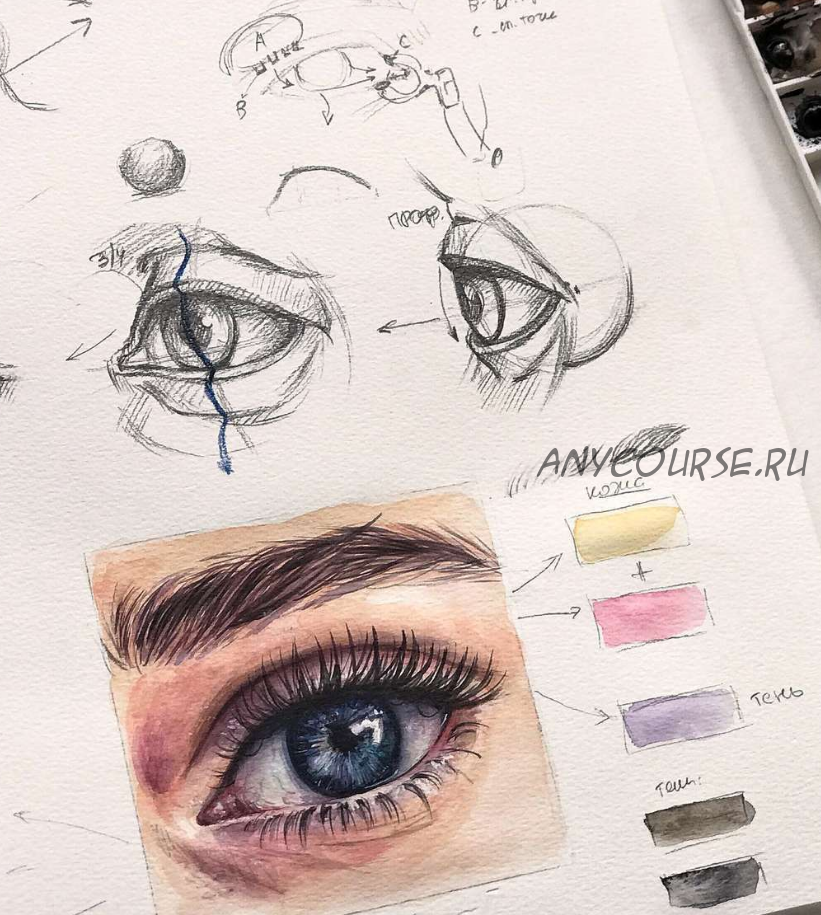 A
B
C
C - оп. точк
3/4
проф.
ANYCOURSE.RU
кожа
+
тень
тени: